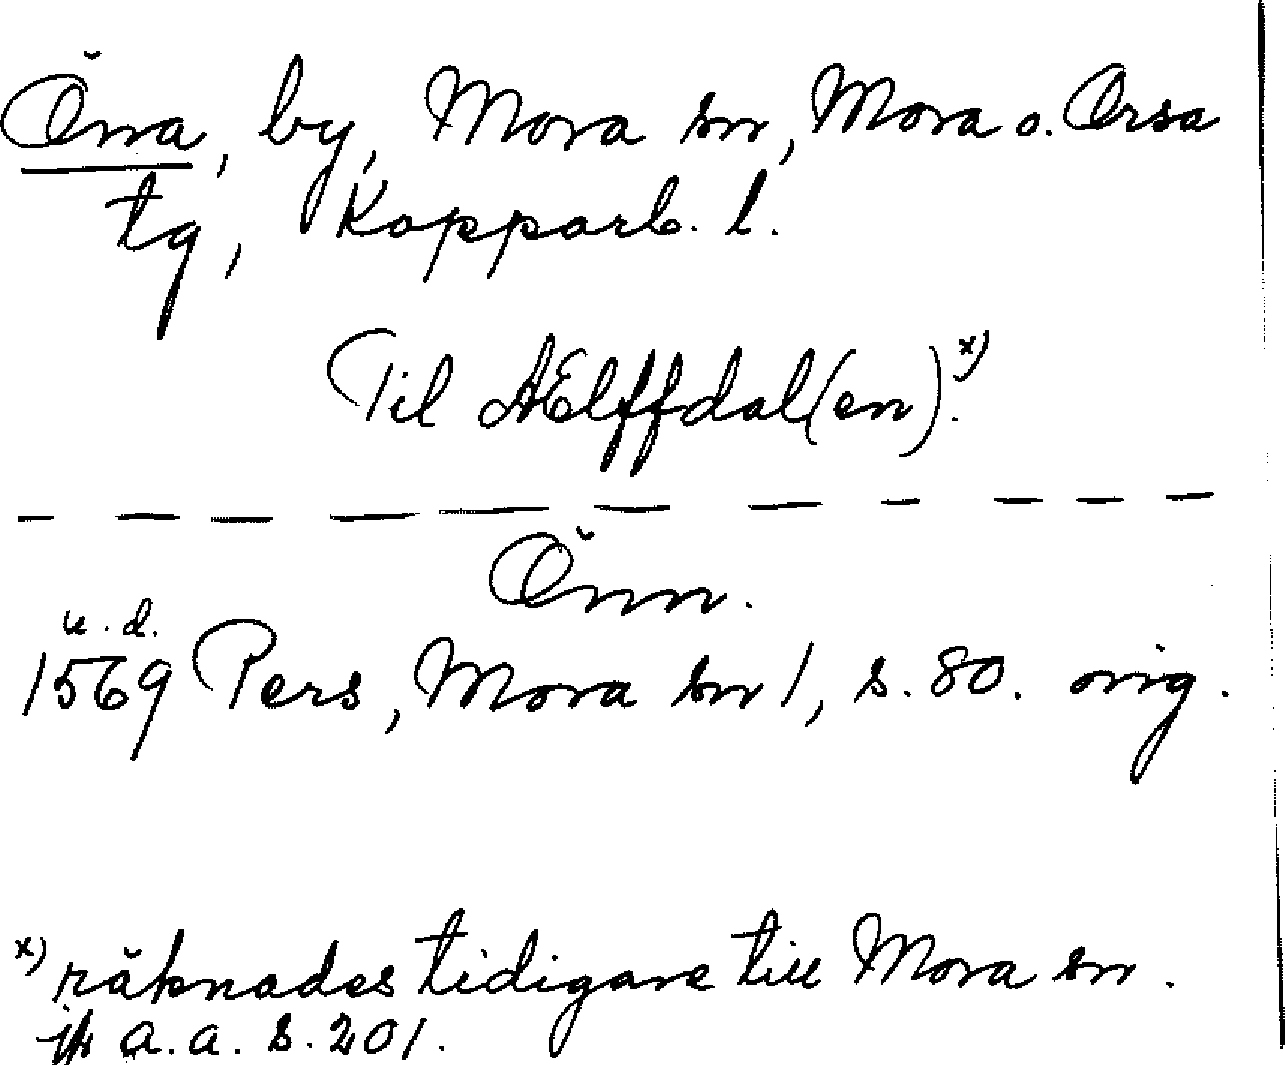 Öna, by, Mora sn, Mora o. Orsa
tg, Kopparb. l.
Til AElffdal(en).x)
Önn.
u. d.
1569 Pers, Mora sn 1, s. 80. orig.
x) räknades tidigare till Mora sn.
jfr a. a. s. 201.